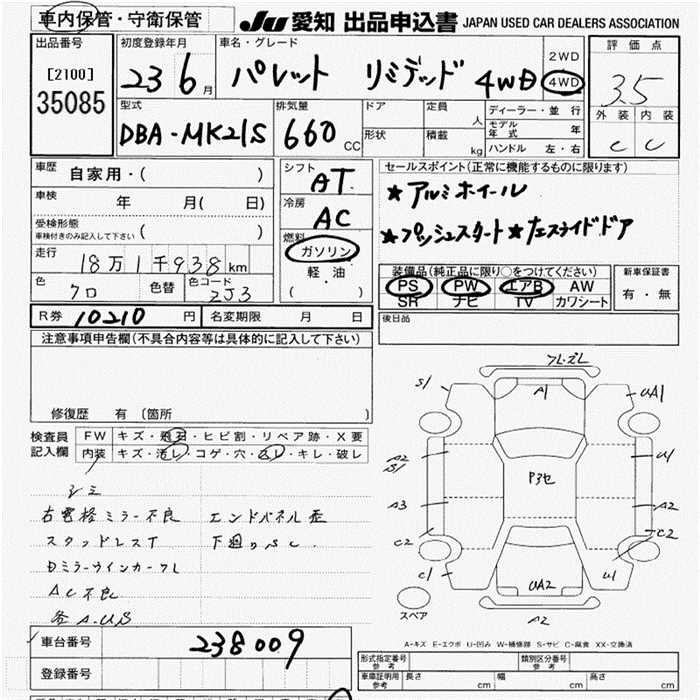 車内保管・守衛保管
JU 愛知 出品申込書 JAPAN USED CAR DEALERS ASSOCIATION
出品番号
[2100]
35085
初度登録年月
23 6 月
車名・グレード
パレット リミテッド 4WD
2WD
4WD
評価点
3.5
外装 内装
C C
型式
DBA-MK21S
排気量
660 CC
ドア
形状
定員
人
積載
kg
ディーラー・並行
モデル年式 年
ハンドル 左・右
車歴
自家用・( )
車検
年 月( 日)
受検形態
車検付きのみ記入して下さい ( )
走行
18万1千938 km
色
クロ
色替
色コード
ZJ3
シフト
AT
冷房
AC
燃料
ガソリン
軽油
( )
セールスポイント(正常に機能するものに限ります)
★アルミホイール
★プッシュスタート ★左スライドドア
装備品(純正品に限り○をつけてください)
PS PW エアB AW
SR ナビ TV カワシート
新車保証書
有・無
R券 10210 円
名変期限 月 日
後日品
注意事項申告欄(不具合内容等は具体的に記入して下さい)
修復歴 有 〔箇所 〕
検査員記入欄
FW キズ・飛石・ヒビ割・リペア跡・X要
内装 キズ・汚レ・コゲ・穴・スレ・キレ・破レ
シミ
右電格ミラー不良 エンドパネル歪
スタッドレスT 下廻りSC
Dミラーウインカーワレ
AC不良
各A.U.S
フレ・ズレ
S1
A1
UA1
A2
S1
U1
P3セ
A3
A2
C2
C2
C1
U1
UA2
A2
スペア
A-キズ E-エクボ U-凹み W-補修跡 S-サビ C-腐食 XX-交換済
車台番号 238009
登録番号
形式指定番号 参考
類別区分番号 参考
車庫証明用 参考
長さ cm
幅 cm
高さ cm